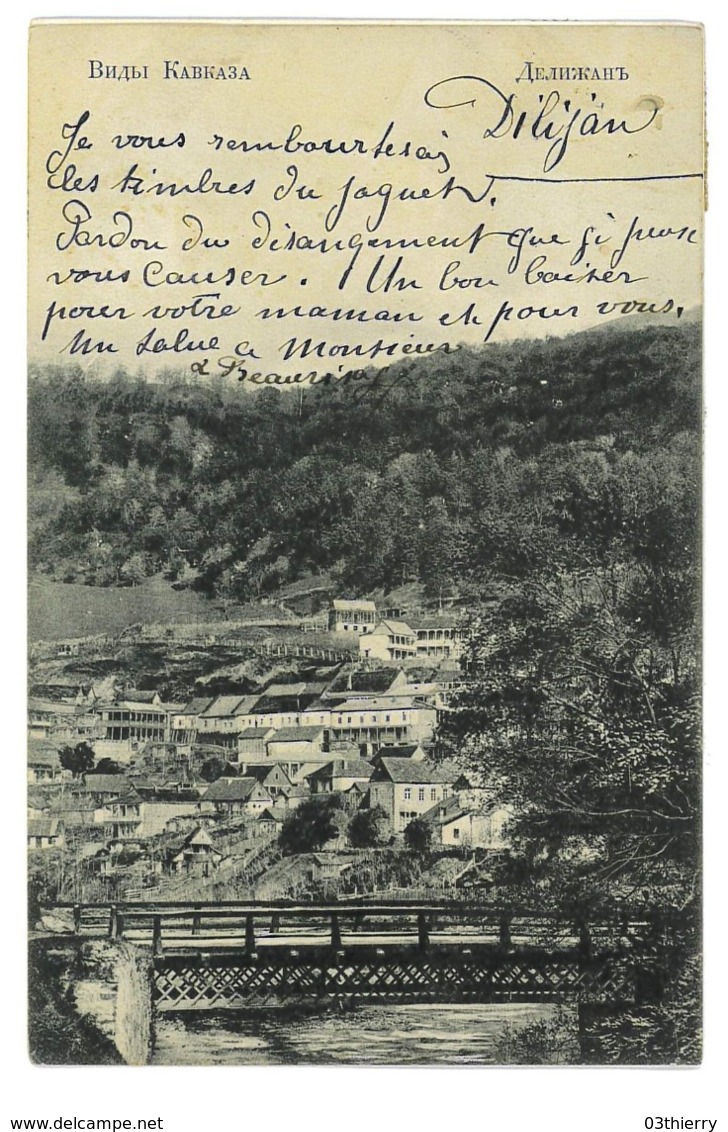 Виды Кавказа
Делижанъ
Dilijan
Je vous rembourserai
les timbres du paquet.
Pardon du dérangement que je puis
vous causer. Un bon baiser
pour votre maman et pour vous.
Un salue a Monsieur
www.delcampe.net
03thierry